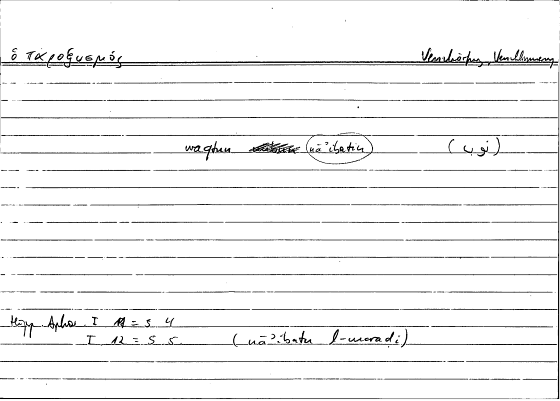 ὁ παροξυσμός Verschärfung, Verschlimmerung
waqtun (nāʾibatin) (نوب)
Hipp Apho. I 11 = 5 4
I 12 = 5 5 (nāʾibatu l-maraḍi)